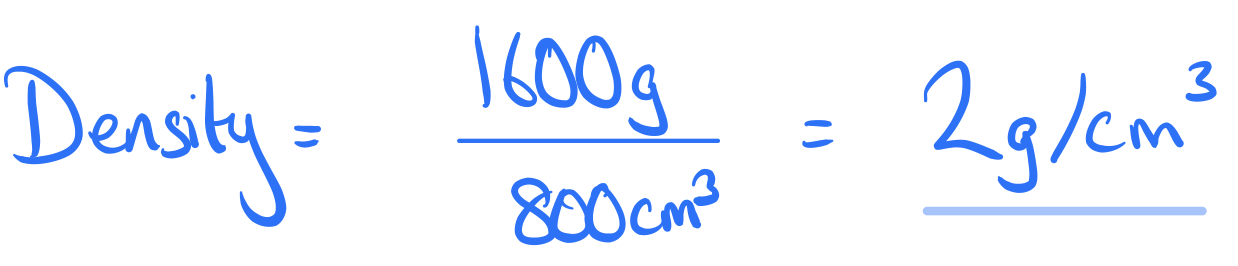 Density = 1600g / 800cm³ = 2g/cm³